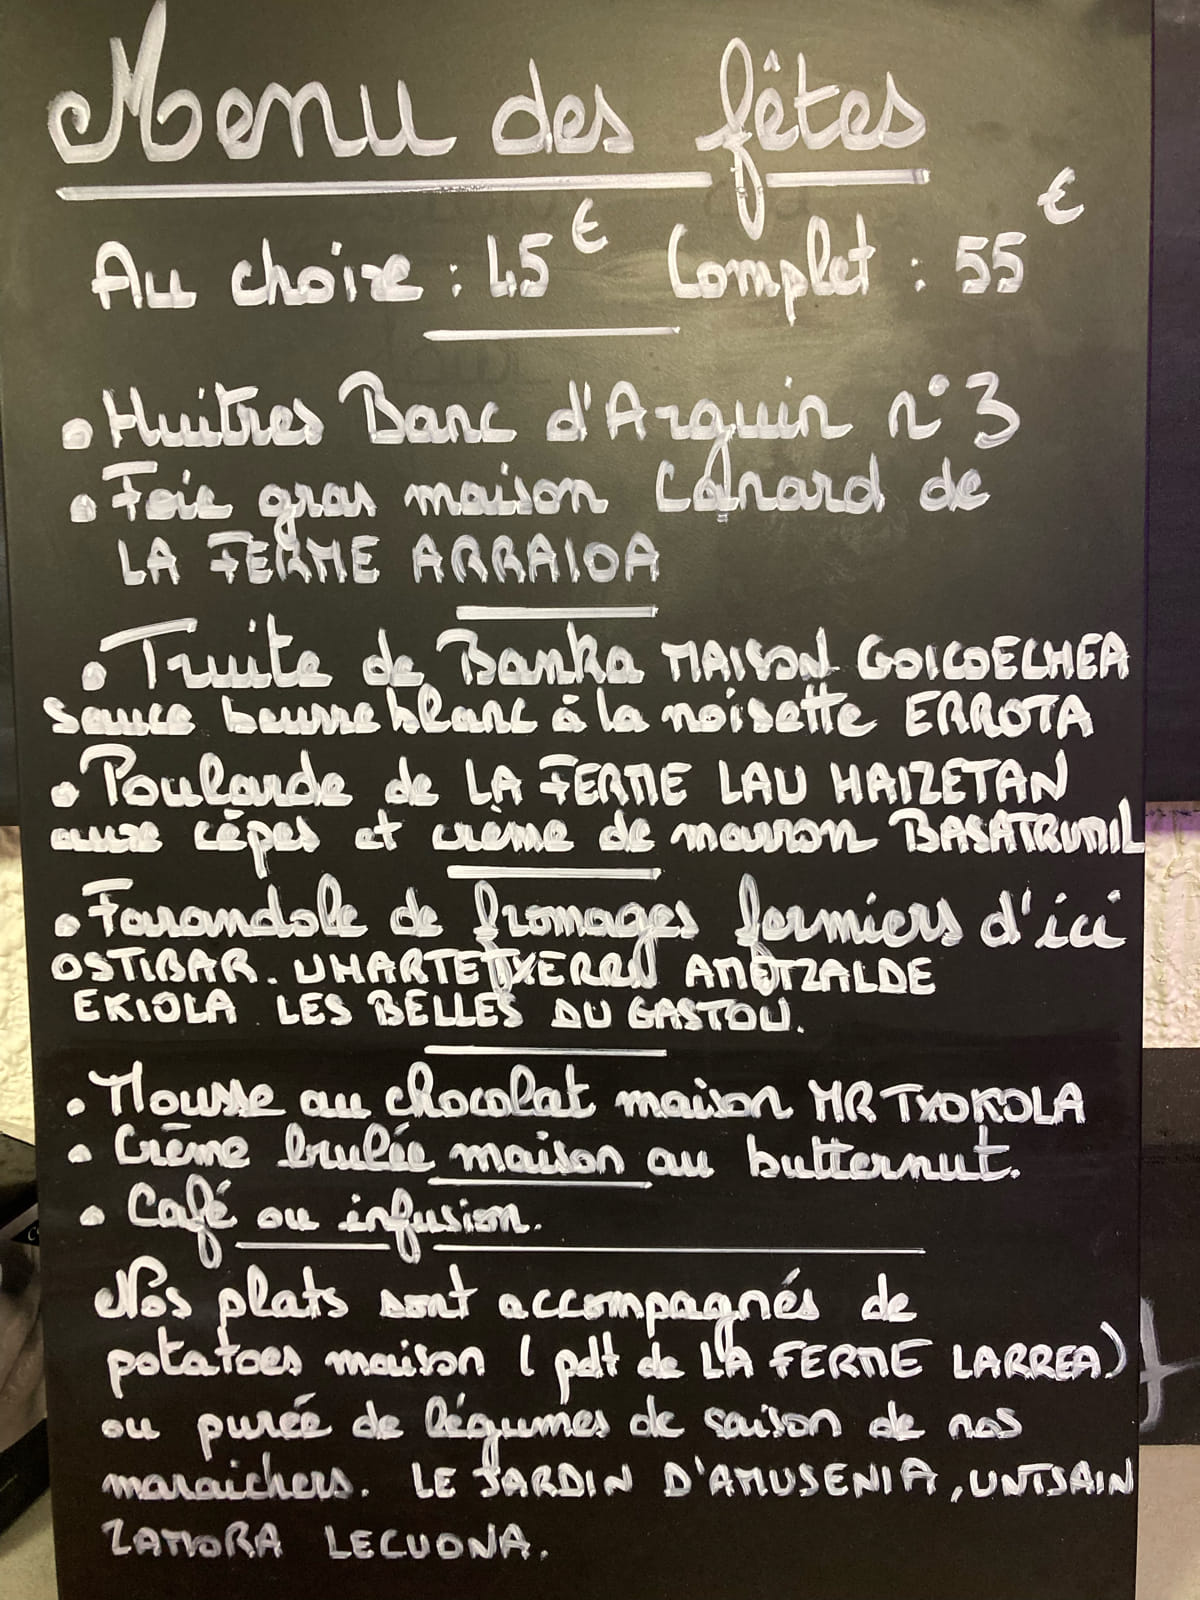 Menu des fêtes
Au choix : 45€ Complet : 55€
• Huitres Banc d'Arguin n°3
• Foie gras maison Canard de
LA FERME ARRAIOA
• Truite de Banka MAISON GOICOECHEA
Sauce beurre blanc à la noisette ERROTA
• Poularde de LA FERME LAU HAIZETAN
aux cêpes et crème de marron
• Farandole de fromages fermiers d'ici
OSTIBAR. UHARTE AMETZALDE
EKIOLA . LES BELLES DU GASTOU.
• Mousse au chocolat maison MR TXOKOLA
• Crème brulée maison au butternut.
• Café ou infusion.
Nos plats sont accompagnés de
potatoes maison ( pdt de LA FERME LARREA)
ou purée de légumes de saison de nos
maraichers. LE JARDIN D'AMUSENIA, UNTSAIN
ZAMORA LECUONA.